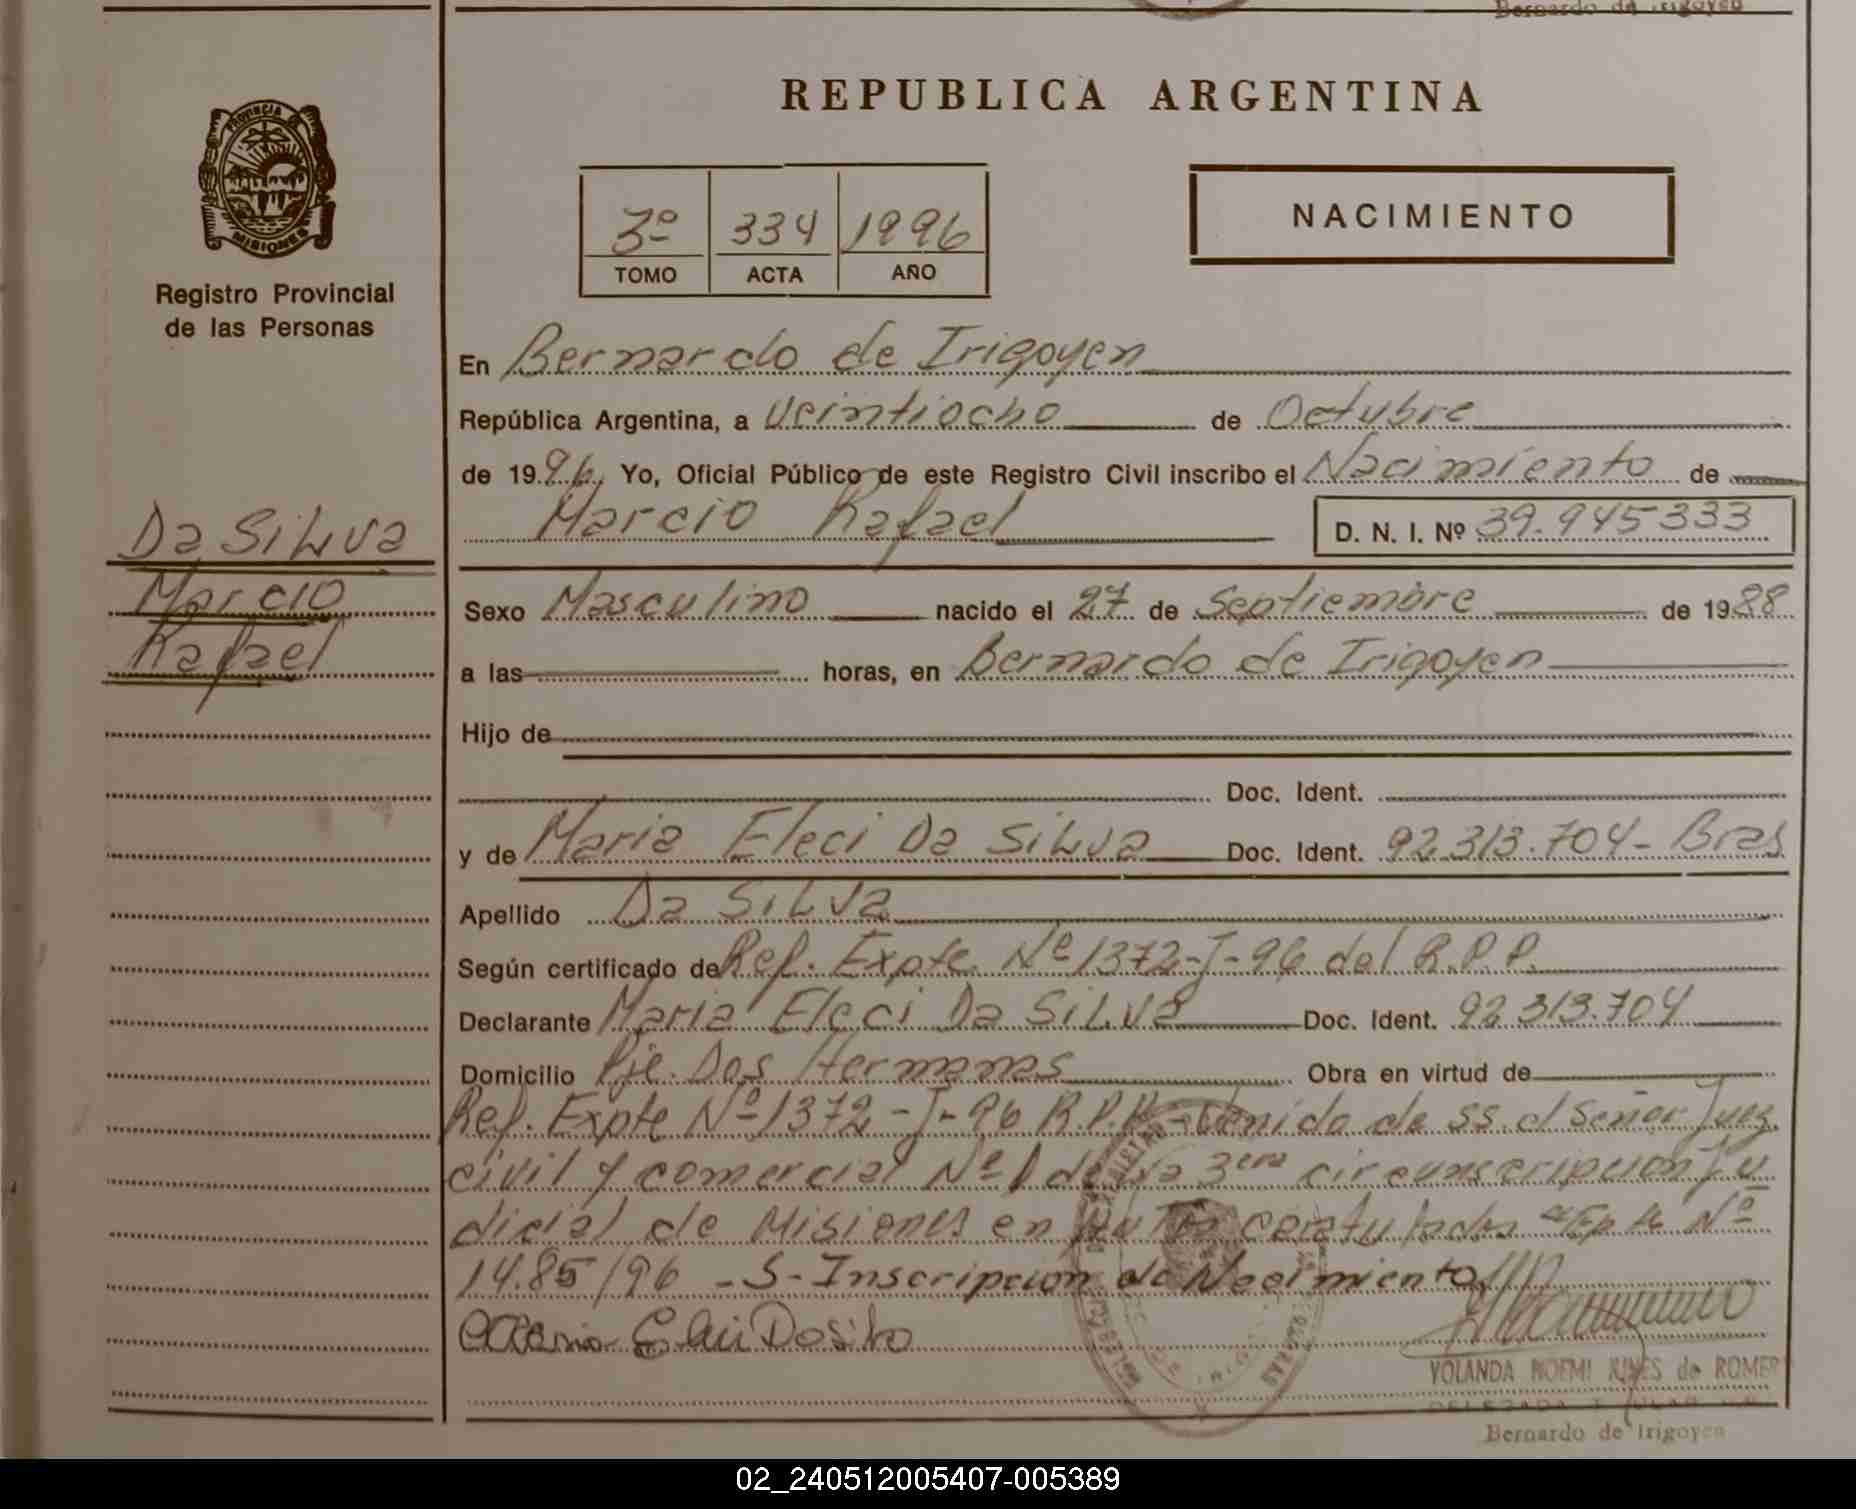 Bernardo de Irigoyen
REPUBLICA ARGENTINA
PROVINCIA DE
MISIONES
Registro Provincial
de las Personas
3º 334 1996
TOMO ACTA AÑO
NACIMIENTO
En Bernardo de Irigoyen
República Argentina, a Veintiocho de Octubre
de 1996. Yo, Oficial Público de este Registro Civil inscribo el Nacimiento de
Marcio Rafael D. N. I. Nº 39.945333
Da SiLva
Marcio
Rafael
Sexo Masculino nacido el 27 de Septiembre de 1988
a las horas, en Bernardo de Irigoyen
Hijo de
Doc. Ident.
y de Maria Eleci Da SiLva Doc. Ident. 92.313.704- Bras
Apellido Da SiLva
Según certificado de Ref. Expte. Nº 1372-J-96 del R.P.P.
Declarante Maria Eleci Da SiLva Doc. Ident. 92.313.704
Domicilio Pje. Dos Hermanas Obra en virtud de
Ref. Expte Nº 1372-J-96 R.P.P. de SS. el Señor Juez
civil y comercial Nº 1 de la 3era circunscripcion Ju
dicial de Misiones en Autos caratulados "Expte Nº
1485/96 -S- Inscripcion de Nacimiento
YOLANDA NOEMI de ROMER
Bernardo de Irigoyen
02_240512005407-005389